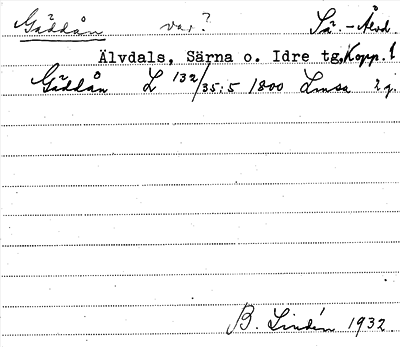 Gäddån var? Sä.-Älvd.
Älvdals, Särna o. Idre tg, Kopp. l
Gäddån L 132/35:5 1800 Lmsa
B. Lindén 1932